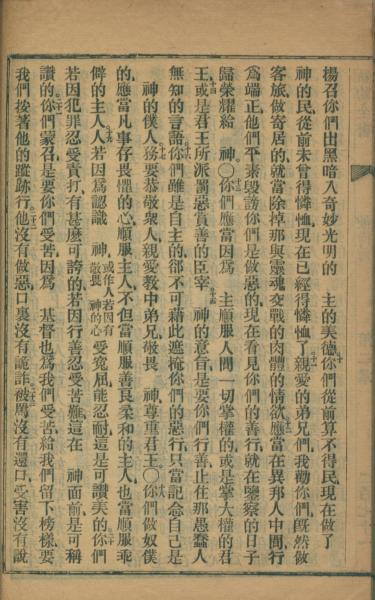 揚召你們出黑暗入奇妙光明的 主的美德十你們從前算不得民現在做了
神的民從前未曾得憐恤現在已經得憐恤了十一親愛的弟兄們我勸你們旣然做
客旅做寄居的就當除掉那與靈魂交戰的肉體的情欲十二應當在異邦人中間行
爲端正他們平素毀謗你們是做惡的現在看見你們的善行就在鑒察的日子
歸榮耀給 神○十三你們應當因爲 主順服人間一切掌權的或是掌大權的君
王十四或是君王所派罰惡賞善的臣宰十五 神的意旨是要你們行善止住那愚蠢人
無知的言語十六你們雖是自主的卻不可藉此遮掩你們的惡行只當記念自己是
神的僕人十七務要恭敬衆人親愛教中弟兄敬畏 神尊重君王○十八你們做奴僕
的應當凡事存畏懼的心順服主人不但當順服善良柔和的主人也當順服乖
僻的主人十九人若因爲認識 神或作人若因有敬畏 神的心受寃屈能忍耐這是可讚美的二十你們
若因犯罪忍受責打有甚麽可誇的若因行善忍受苦難這在 神面前是可稱
讚的二十一你們蒙召是要你們受苦因爲 基督也爲我們受苦給我們留下榜樣要
我們按著他的蹤跡行二十二他沒有做惡口裏沒有詭詐二十三被罵沒有還口受害沒有說